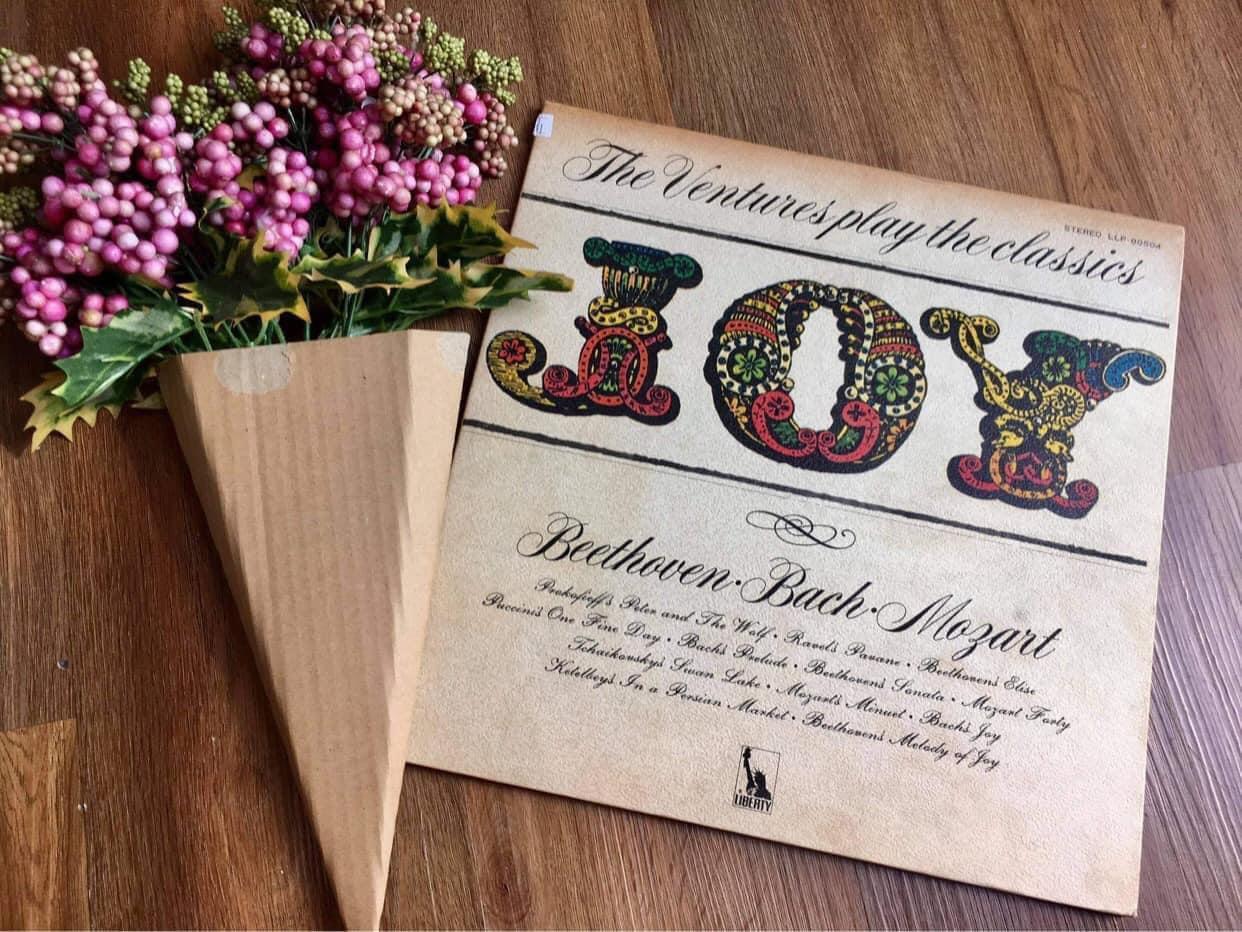 The Ventures play the classics
STEREO LLP-80504
JOY
Beethoven · Bach · Mozart
Prokofieff's Peter and The Wolf · Ravel's Pavane · Beethoven's Elise
Puccini's One Fine Day · Bach's Prelude · Beethoven's Sonata · Mozart Forty
Tchaikovsky's Swan Lake · Mozart's Minuet · Bach's Joy
Ketelbey's In a Persian Market · Beethoven's Melody of Joy
LIBERTY